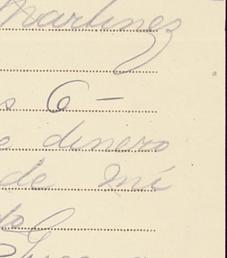 Martinez
s 6 -
o dinero
de mi